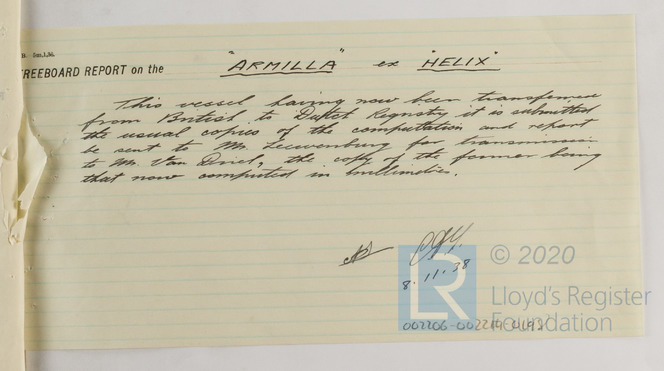 REEBOARD REPORT on the "ARMILLA" ex "HELIX"
This vessel having now been transferred
from British to Dutch Registry it is submitted
the usual copies of the computation and report
be sent to Mr. Leeuwenburg for transmission
to Mr. Van Driel, the copy of the former being
that now computed in millimetres.
8.11.38
© 2020
LR
Lloyd's Register
Foundation